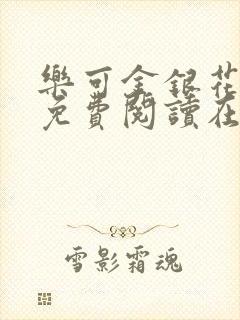 樂可金銀花
免費閱讀在
雪影霜魂